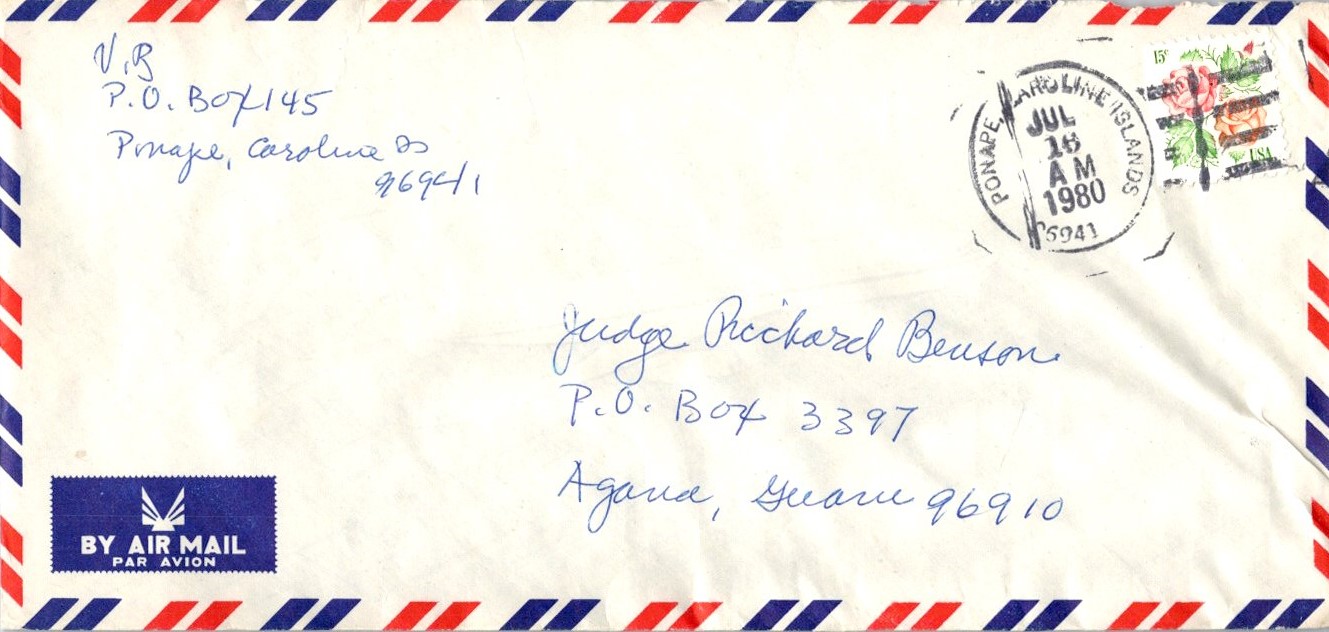 V.B
P.O. Box 145
Ponape, Caroline Is
96941
15c
USA
PONAPE, CAROLINE ISLANDS
JUL
16
AM
1980
96941
Judge Richard Benson
P.O. Box 3397
Agana, Guam 96910
BY AIR MAIL
PAR AVION